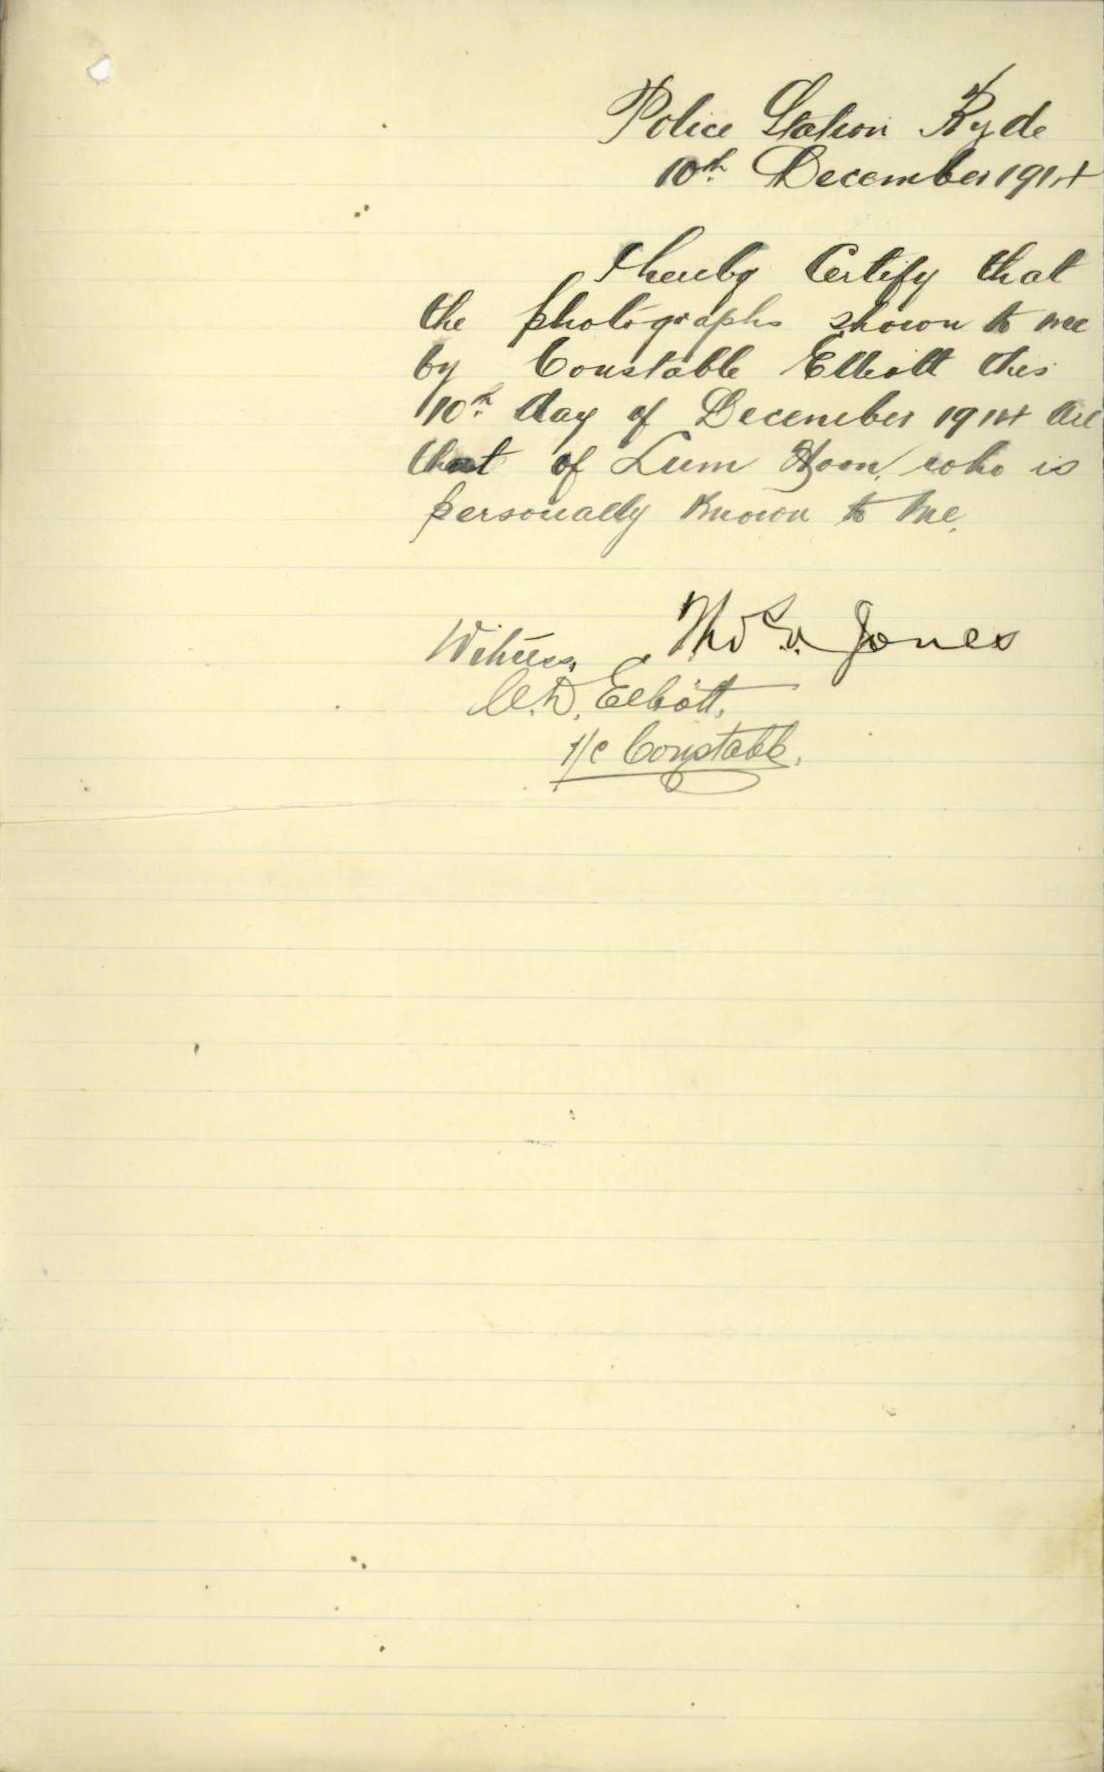 Police Station Ryde
10th December 1914
I hereby Certify that
the photographs shown to me
by Constable Elliott this
10th day of December 1914 are
that of Lum Hoon, who is
personally known to me.
Thos G. Jones
Witness,
Elliott,
1/c Constable.